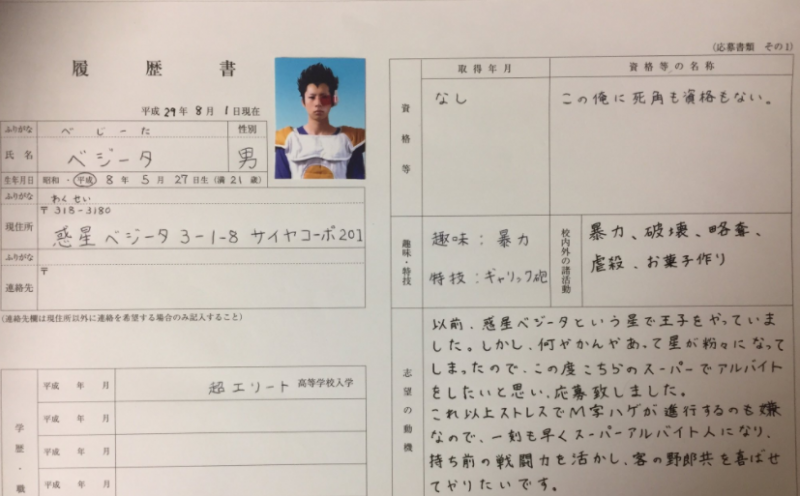 履歴書
平成 29年 8月 1日現在
ふりがな べじーた 性別
氏名 ベジータ 男
生年月日 昭和・平成 8年 5月 27日生(満 21歳)
ふりがな わくせい
現住所 〒318-3180
惑星ベジータ 3-1-8 サイヤコーポ201
ふりがな
連絡先 〒
(連絡先欄は現住所以外に連絡を希望する場合のみ記入すること)
学歴・職
平成 年 月 超エリート 高等学校入学
平成 年 月
平成 年 月
平成 年 月
(応募書類 その1)
資格等
取得年月 資格等の名称
なし この俺に死角も資格もない。
趣味・特技
趣味:暴力
特技:ギャリック砲
校内外の諸活動
暴力、破壊、略奪、
虐殺、お菓子作り
志望の動機
以前、惑星ベジータという星で王子をやっていま
した。しかし、何やかんやあって星が粉々になって
しまったので、この度こちらのスーパーでアルバイト
をしたいと思い、応募致しました。
これ以上ストレスでM字ハゲが進行するのも嫌
なので、一刻も早くスーパーアルバイト人になり、
持ち前の戦闘力を活かし、客の野郎共を喜ばせ
てやりたいです。